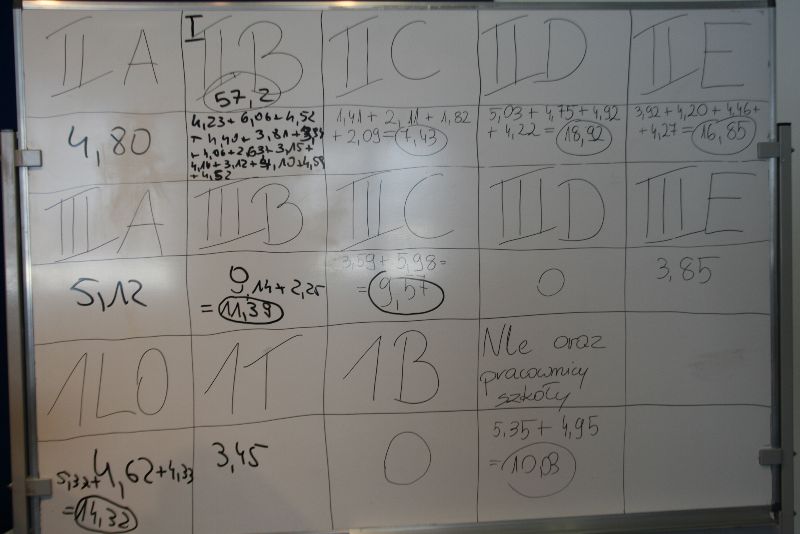 II A
I
II B
57,2
II C
II D
II E
4,80
4,23 + 6,06 + 4,52
+ 4,40 + 3,81 +
+ 4,06 + 2,63 + 3,15 +
+ 4,52
1,41 + 2,11 + 1,82
+ 2,09 = 7,43
5,03 + 4,75 + 4,92
+ 4,22 = 18,92
3,92 + 4,20 + 4,46 +
+ 4,27 = 16,85
III A
III B
III C
III D
III E
5,12
9,14 + 2,25
= 11,39
3,59 + 5,98 =
= 9,57
0
3,85
1LO
1T
1B
NLe oraz
pracownicy
szkoły
5,32 + 4,62 + 4,33
= 14,32
3,45
0
5,35 + 4,95
= 10,03